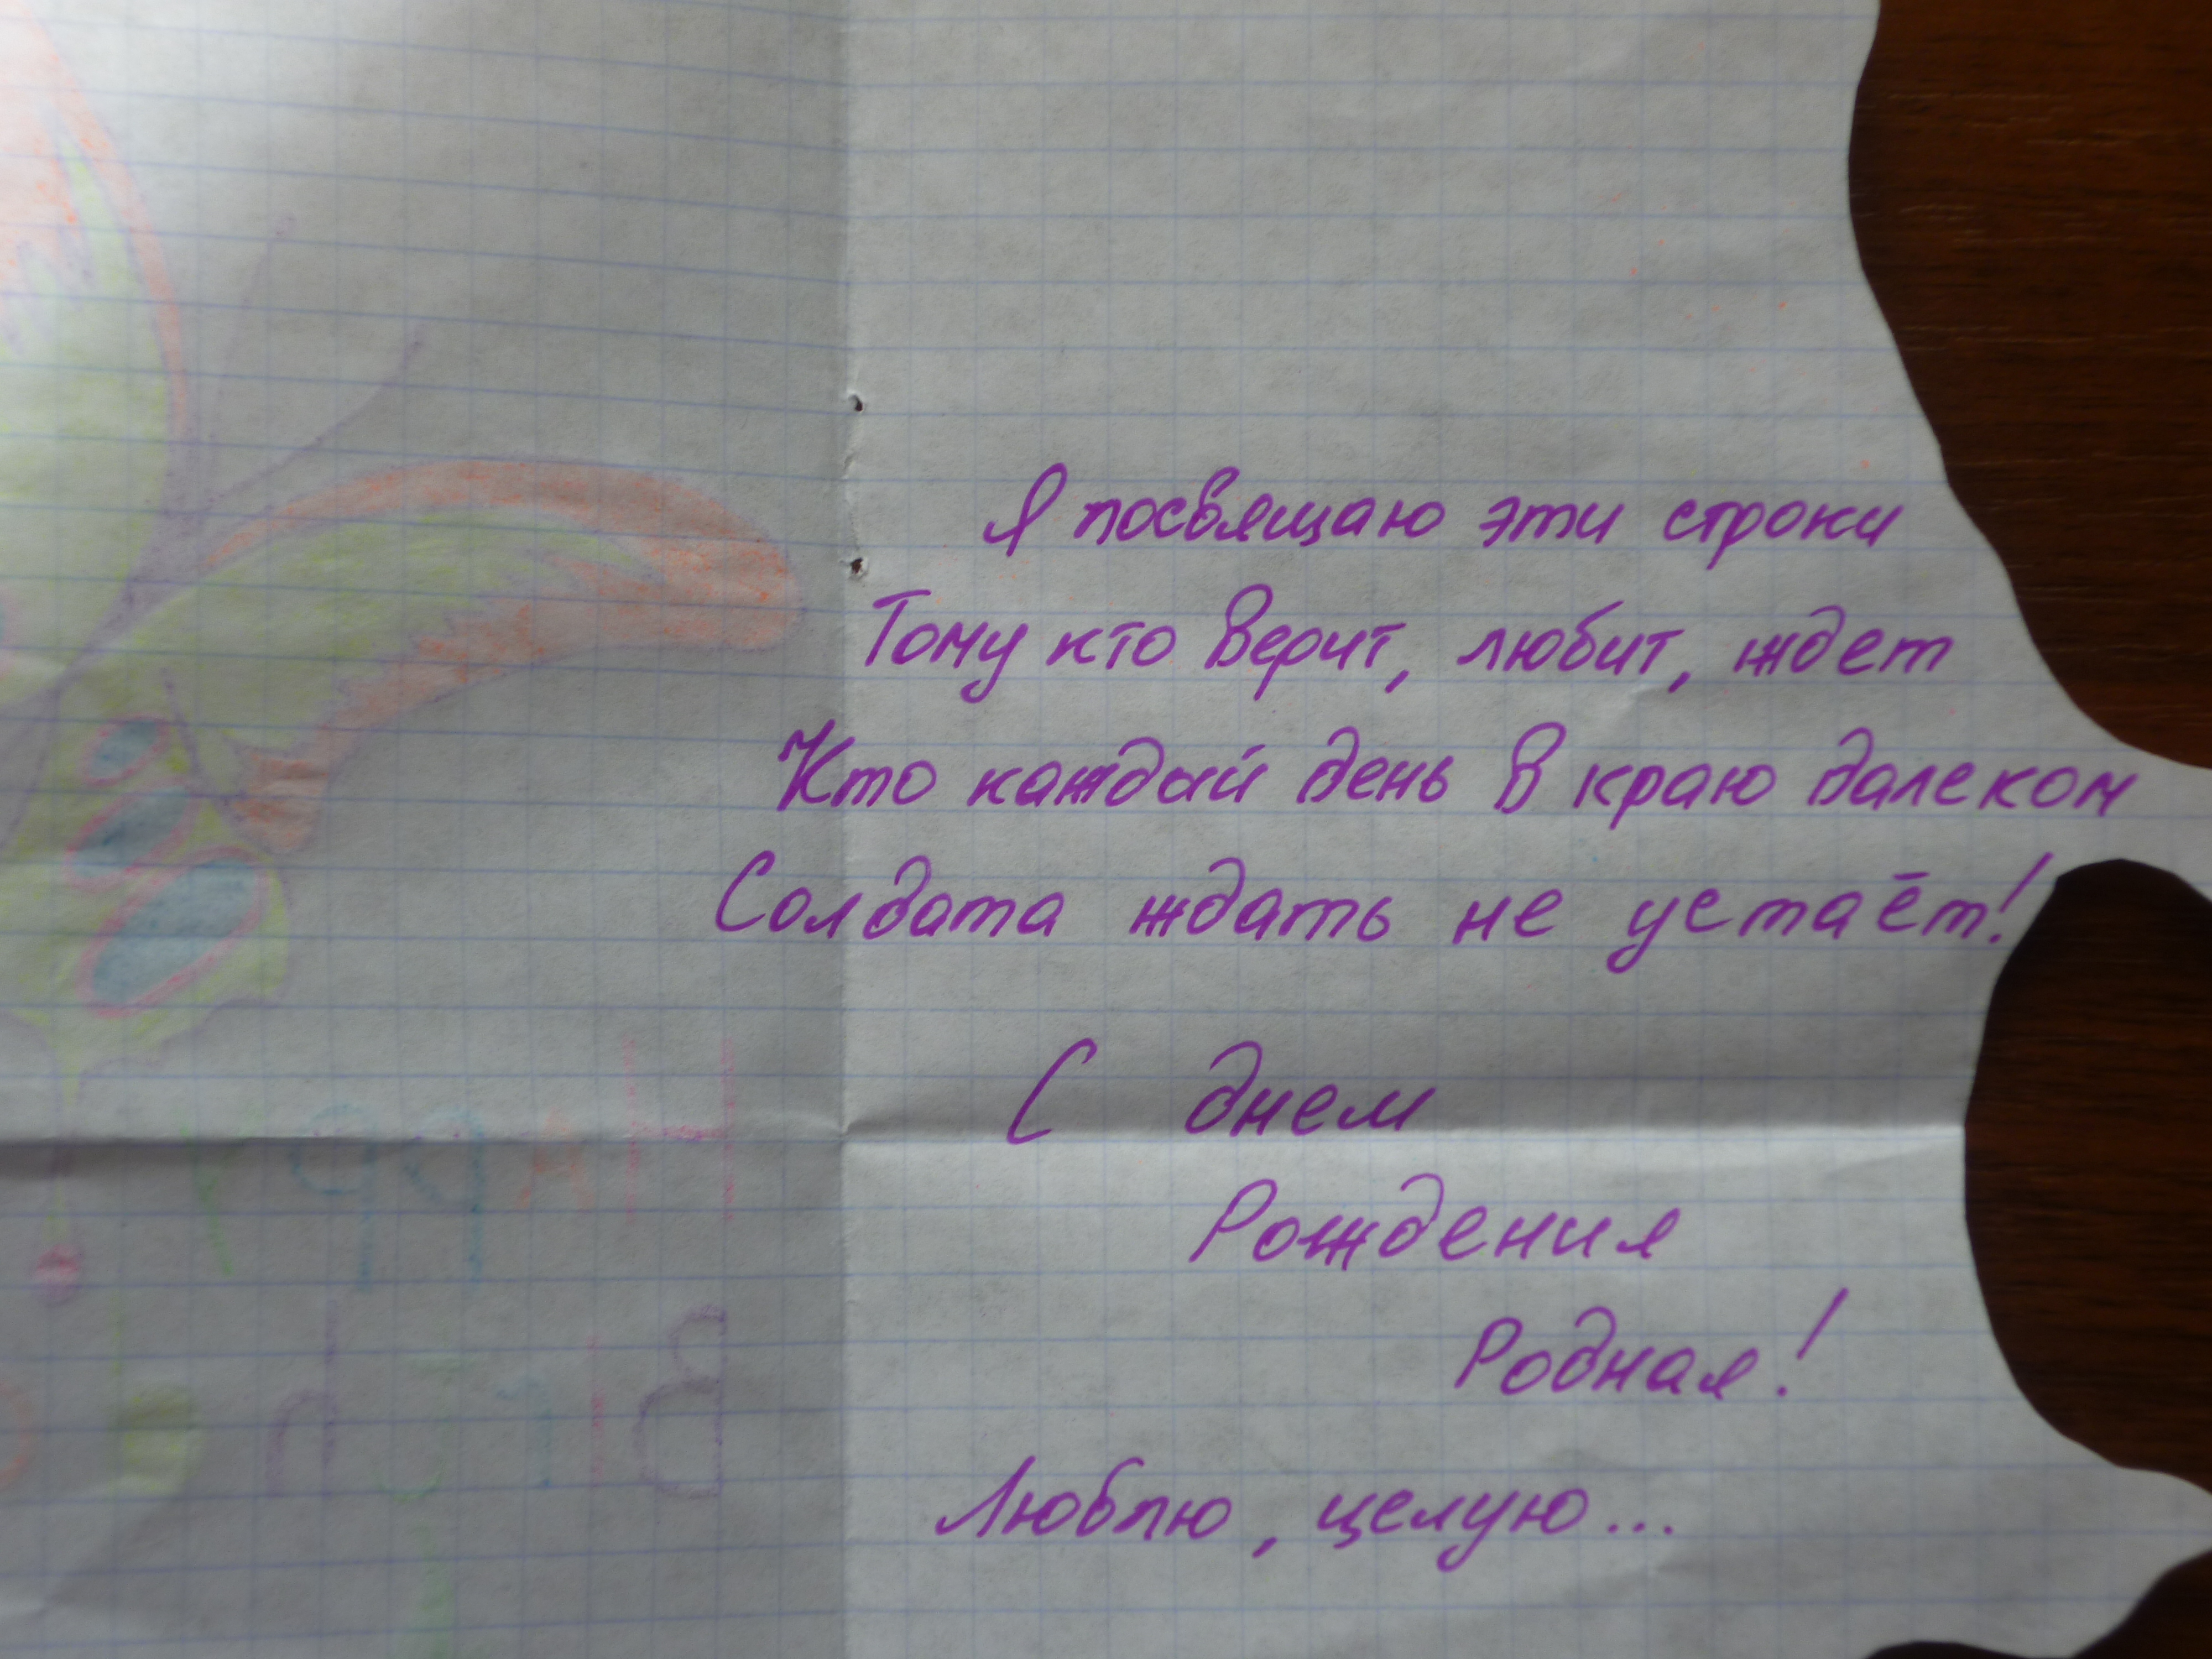 Я посвящаю эти строки
Тому кто верит, любит, ждет
Кто каждый день в краю далеком
Солдата ждать не устаёт!
С днем
Рождения
Родная!
Люблю, целую...
Happy
Birth